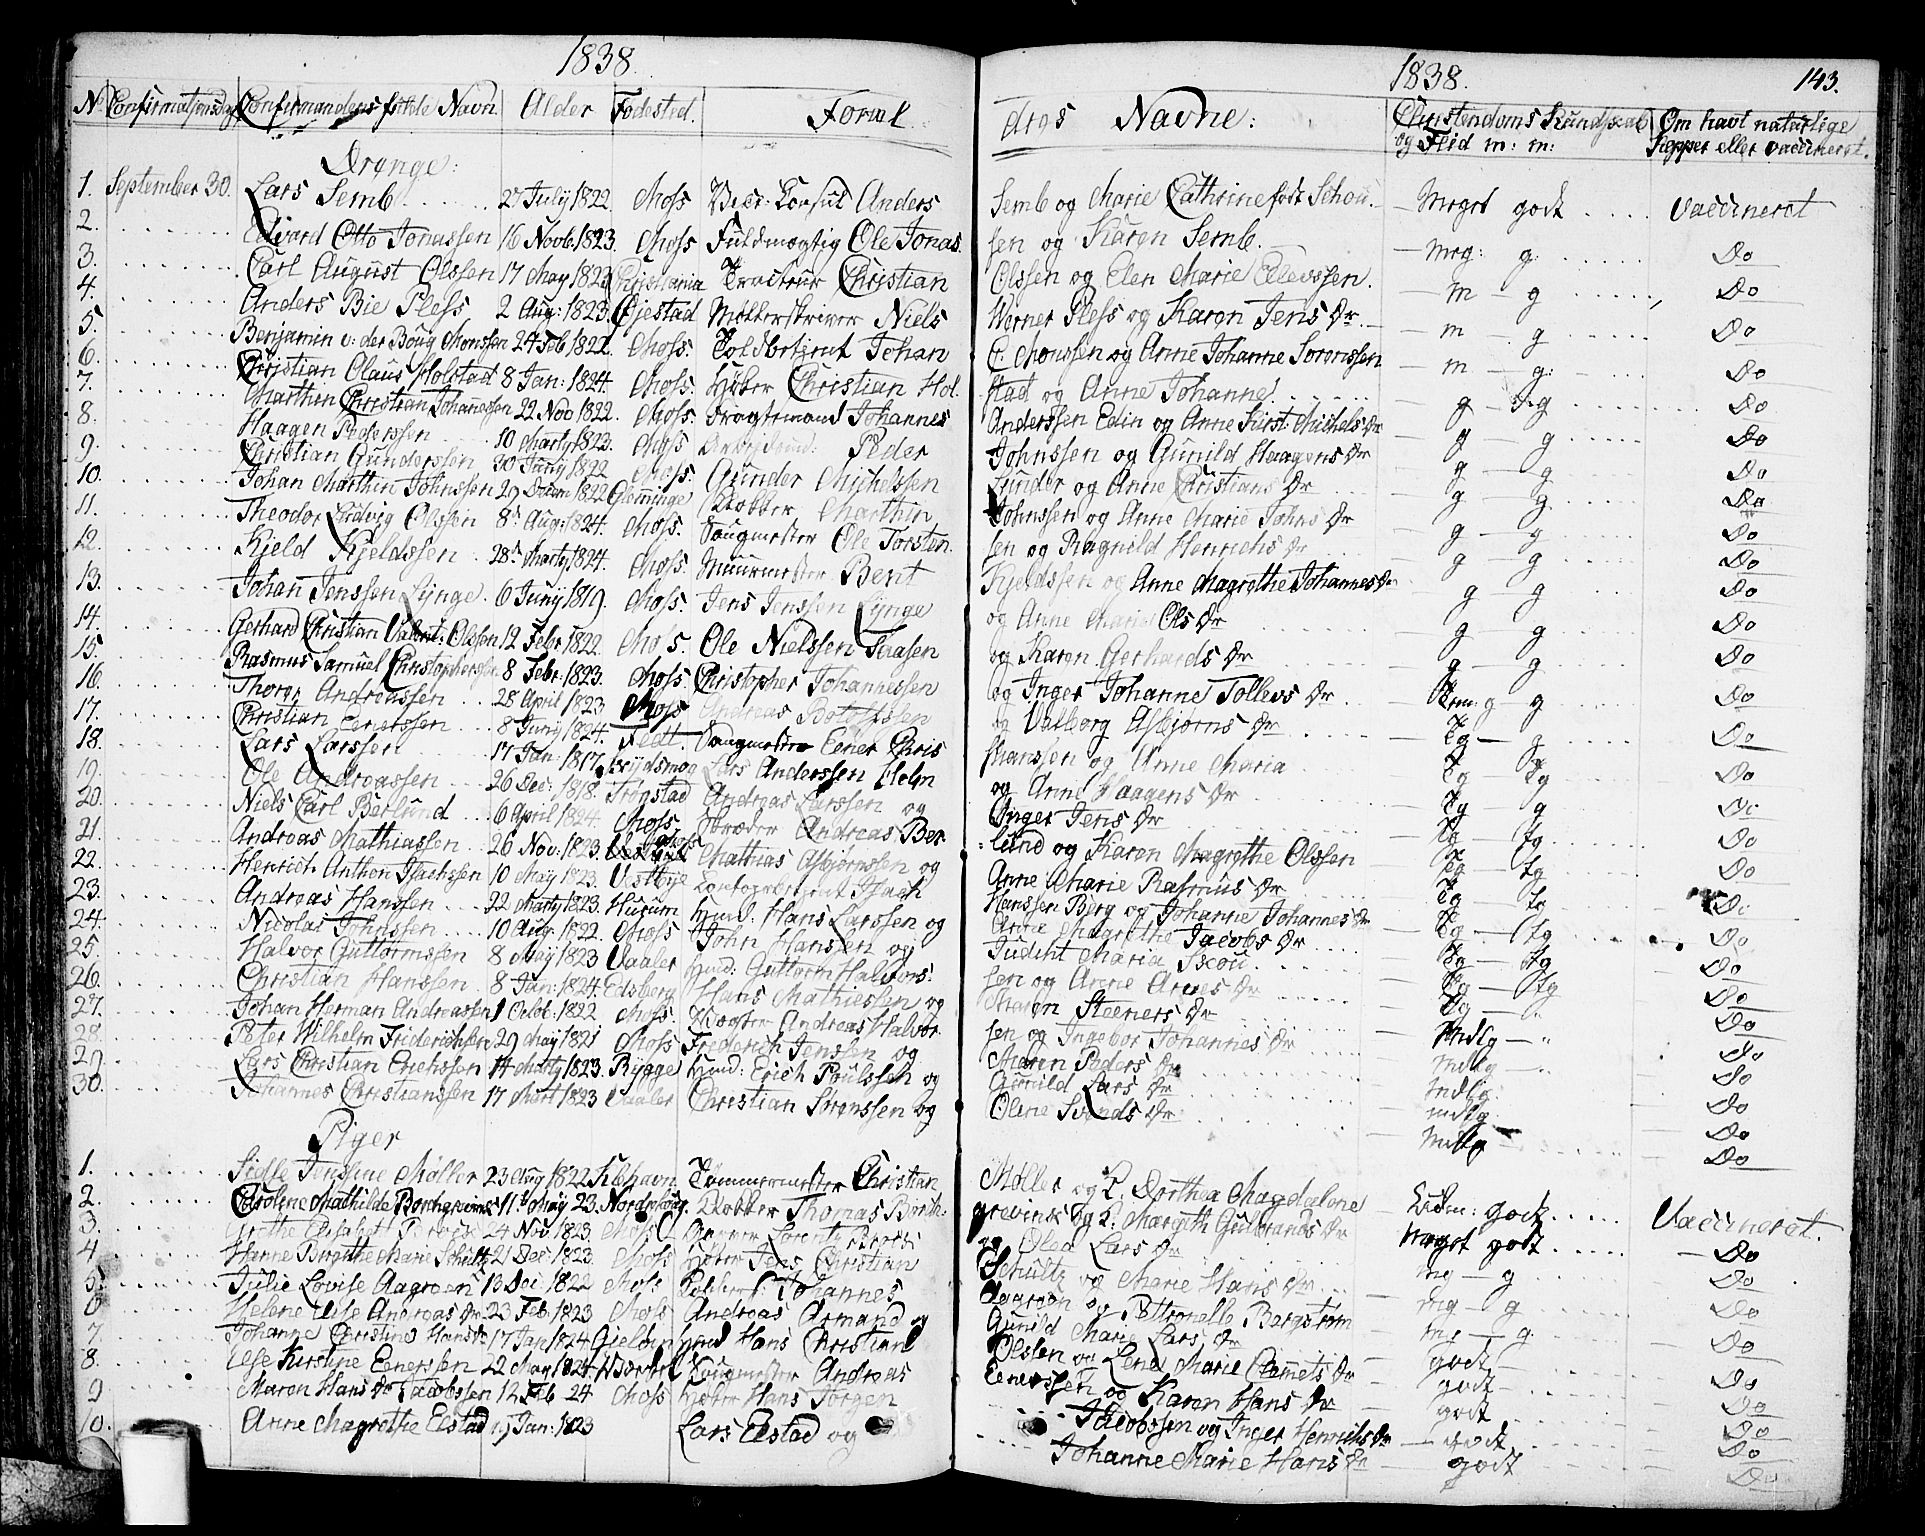 1838.
1838.
143.
No Confirmationsdag Confirmandens fulde Navn Alder Fødested. Foræl dres Navne: Christendoms Kundskab og Flid m: m: Om havt naturlige Kopper eller vaccineret.
Drenge:
1. September 30. Lars Semb 27 July 1822. Moss Vice-Consul Anders Semb og Marie Cathrine født Schou. Meget godt Vaccineret
2. Edvard Otto Jonassen 16 Novb. 1823. Moss Fuldmægtig Ole Jonas sen og Karen Semb. Meg: g. Do
3. Carl August Olssen 17 May 1823 Christiania Tracteur Christian Olssen og Elen Marie Ellevssen. m - g Do
4. Anders Bie Pless 2 Aug: 1823. Ejestad Møllerskriver Niels Werner Pless og Karen Jens Dr. m - g Do
5. Benjamin v: der Boug Monssen 24 Feb 1822. Moss. Toldbetjent Johan C. Monssen og Anne Johanne Sørenssen m - g: Do
6. Christian Claus Holstad 8 Jan: 1824. Moss. Høker Christian Hol stad og Anne Johanne. g - g Do
7. Marthin Christian Johannessen 22 Nov 1822. Moss. Fragtemand Johannes Anderssen Edin og Anne Kirst. Michels Dr g g Do
8. Haagen Pederssen 10 Marty 1823. Moss Peder Johnssen og Gunild Haagens Dr g - g Do
9. Christian Gunderssen 30 Juny 1822. Moss. Gunder Michelssen Lunder og Anne Christians Dr g g. Do
10. Johan Marthin Johnssen 29 Decem 1822 Glemminge Klokker Marthin Johnssen og Anne Marie Johns Dr g - g Do
11. Theodor Ludvig Olssen 8. Aug: 1824. Moss. Saugmester Ole Torsten sen og Ragnild Henrichs Dr g g Do
12. Kjeld Kjeldssen 28. Marty 1824. Moss. Muurmester Bent Kjeldssen og Anne Magrethe Johannes Dr g g Do
13. Johan Jenssen Lynge. 6 Juny 1819. Moss. Jens Jenssen Lynge og Anne Marie Ols Dr g g Do
14. Gerhard Christian Valent. Olssen 12 Febr 1822. Moss. Ole Nielssen Taasen og Karen Gerhards Dr g - g Do
15. Rasmus Samuel Christopherssen 8 Febr: 1823. Moss. Christopher Johannessen og Inger Johanne Tollevs Dr g g Do
16. Thorer Andreassen 28 April 1823 Moss Andreas Botolfssen og Valborg Asbjørns Dr Tg - g Do
17. Christian Eenerssen 8 Juny 1824. Saugmester Eener Chris tianssen og Anne Maria Tg Tg Do
18. Lars Larssen 17 Jan: 1817. Lars Anderssen Holm og Anne Haagens Dr Tg g Do
19. Ole Andreassen 26 Dec: 1818. Trøgstad Andreas Larssen og Inger Jens Dr Tg Tg Do
20. Niels Carl Berlund 6 April 1824. Moss Skræder Andreas Ber lund og Karen Magrethe Olssen Tg - Tg Do
21. Andreas Mathiassen 26 Nov: 1823. Mathias Asbjørnssen og Anne Marie Rasmus Dr Tg - Tg Do
22. Henrich Anthon Isachsen 10 May 1823. Vestbye Contoirbetjent Isach Hanssen Berg og Johanne Johannes Dr Tg - Tg Do
23. Andreas Hanssen 22 Marty 1823. Hurum Huud: Hans Larssen og Anne Magrethe Jacobs Dr Tg - Tg Do
24. Nicolai Johnssen 10 Aug. 1822. Moss John Hanssen og Judiht Maria Skou Tg - Tg Do
25. Halvor Guttormssen 8 May 1823 Vaaler Huud: Guttorm Halvors: sen og Anne Arnes Dr Tg - Do
26. Christian Hanssen 8 Jan: 1824. Edsberg Hans Mathiessen og Maren Steeners Dr Mdlg - " Do
27. Johan Herman Andreassen 1 Octob: 1822. Moss. Andreas Halvor sen og Ingebor Johannes Dr Mdlg Do
28. Peter Wilhelm Friderichsen 29 May 1821 Moss Frederich Jenssen og Maren Peders Dr Mdlg Do
29. Lars Christian Erichssen 14 Marty 1823. Rygge Huud: Erich Poulssen og Gunild Lars Dr Mdlg Do
30. Johannes Christianssen 17 Mart 1823 Vaaler Christian Sørenssen og Oline Svends Dr Mdlg Do
Piger
1. Sidse Jensine Møller 23 Aug 1822. Kibhavn. Tømmermester Christian Møller og D. Dorthea Magdalene Udm: godt Vaccineret.
2. Caroline Mathilde Borchgrevinck 11. May 23. Klokker Thomas Borch grevink og D: Margeth Gulbrands Dr Meget godt Do
3. Grethe Elisabet 24 Nov 1823. Moss Lorentz og Olea Lars Dr mg - g Do
4. Hanne Birgithe Marie Schultz 21 Dec: 1823. Moss Høker Jens Christian Schultz og Marie Hans Dr mg - g Do
5. Julie Lovise Aagreen 13 Dec 1822 Moss Johannes Aagreen og Pettronelle Bergstrøm mg - g Do
6. Helene Andreas Dr 23 Feb. 1823 Moss Andreas Armand og Gunild Marie Lars Dr godt Do
7. Johanne Christine Hans Dr 17 Jan 1824 Huud Hans Christian Olsen og Lene Marie Clemets Dr godt Do
8. Else Kirstine Eenerssen 22 May 1824 Saugmester Andreas Eenerssen og Karen Hans Dr godt Do
9 Maren Hans Dr Jacobssen 12 Feb 24 Moss Høker Hans Jørgen Jacobssen og Inger Henrichs Dr godt Do
10. Anne Magrethe Eestad 19 Jan: 1823 Lars Eestad og Johanne Marie Hans Dr godt Do